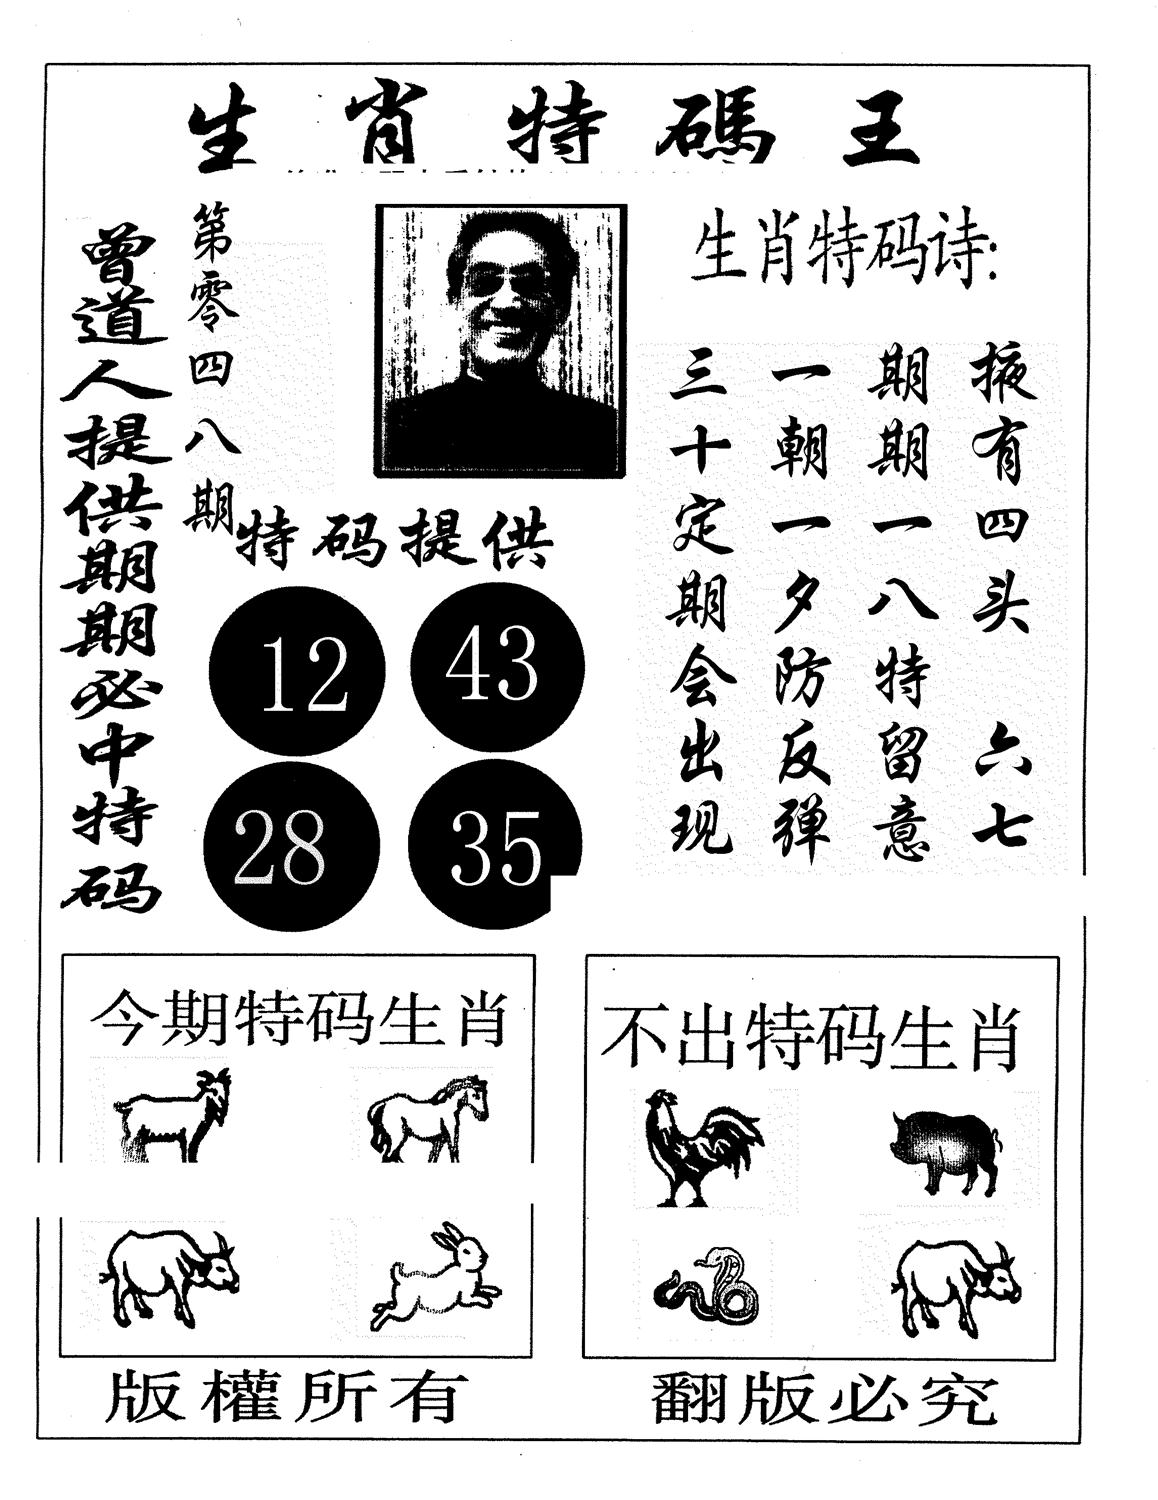 生肖特碼王
曾道人提供期期必中特码
第零四八期
特码提供
12 43
28 35
生肖特码诗:
掖有四头 六七
期期一八特留意
一朝一夕防反弹
三十定期会出现
今期特码生肖
不出特码生肖
版權所有
翻版必究